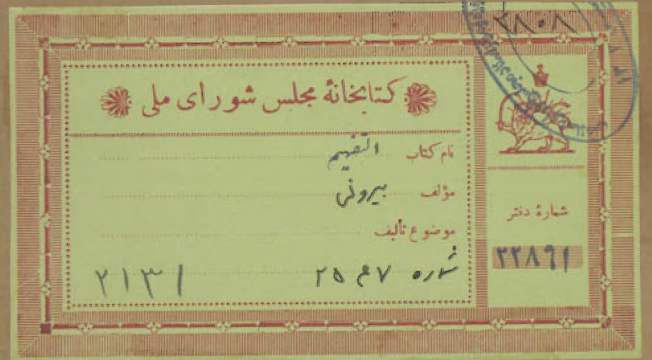 ۲۸۰۸
کتابخانهٔ مجلس شورای ملی
نام کتاب التفهیم
مؤلف بیرونی
موضوع تألیف
شماره ۲۵۴۷
۲۱۳۱
شمارهٔ دفتر
۲۲۸۶۱